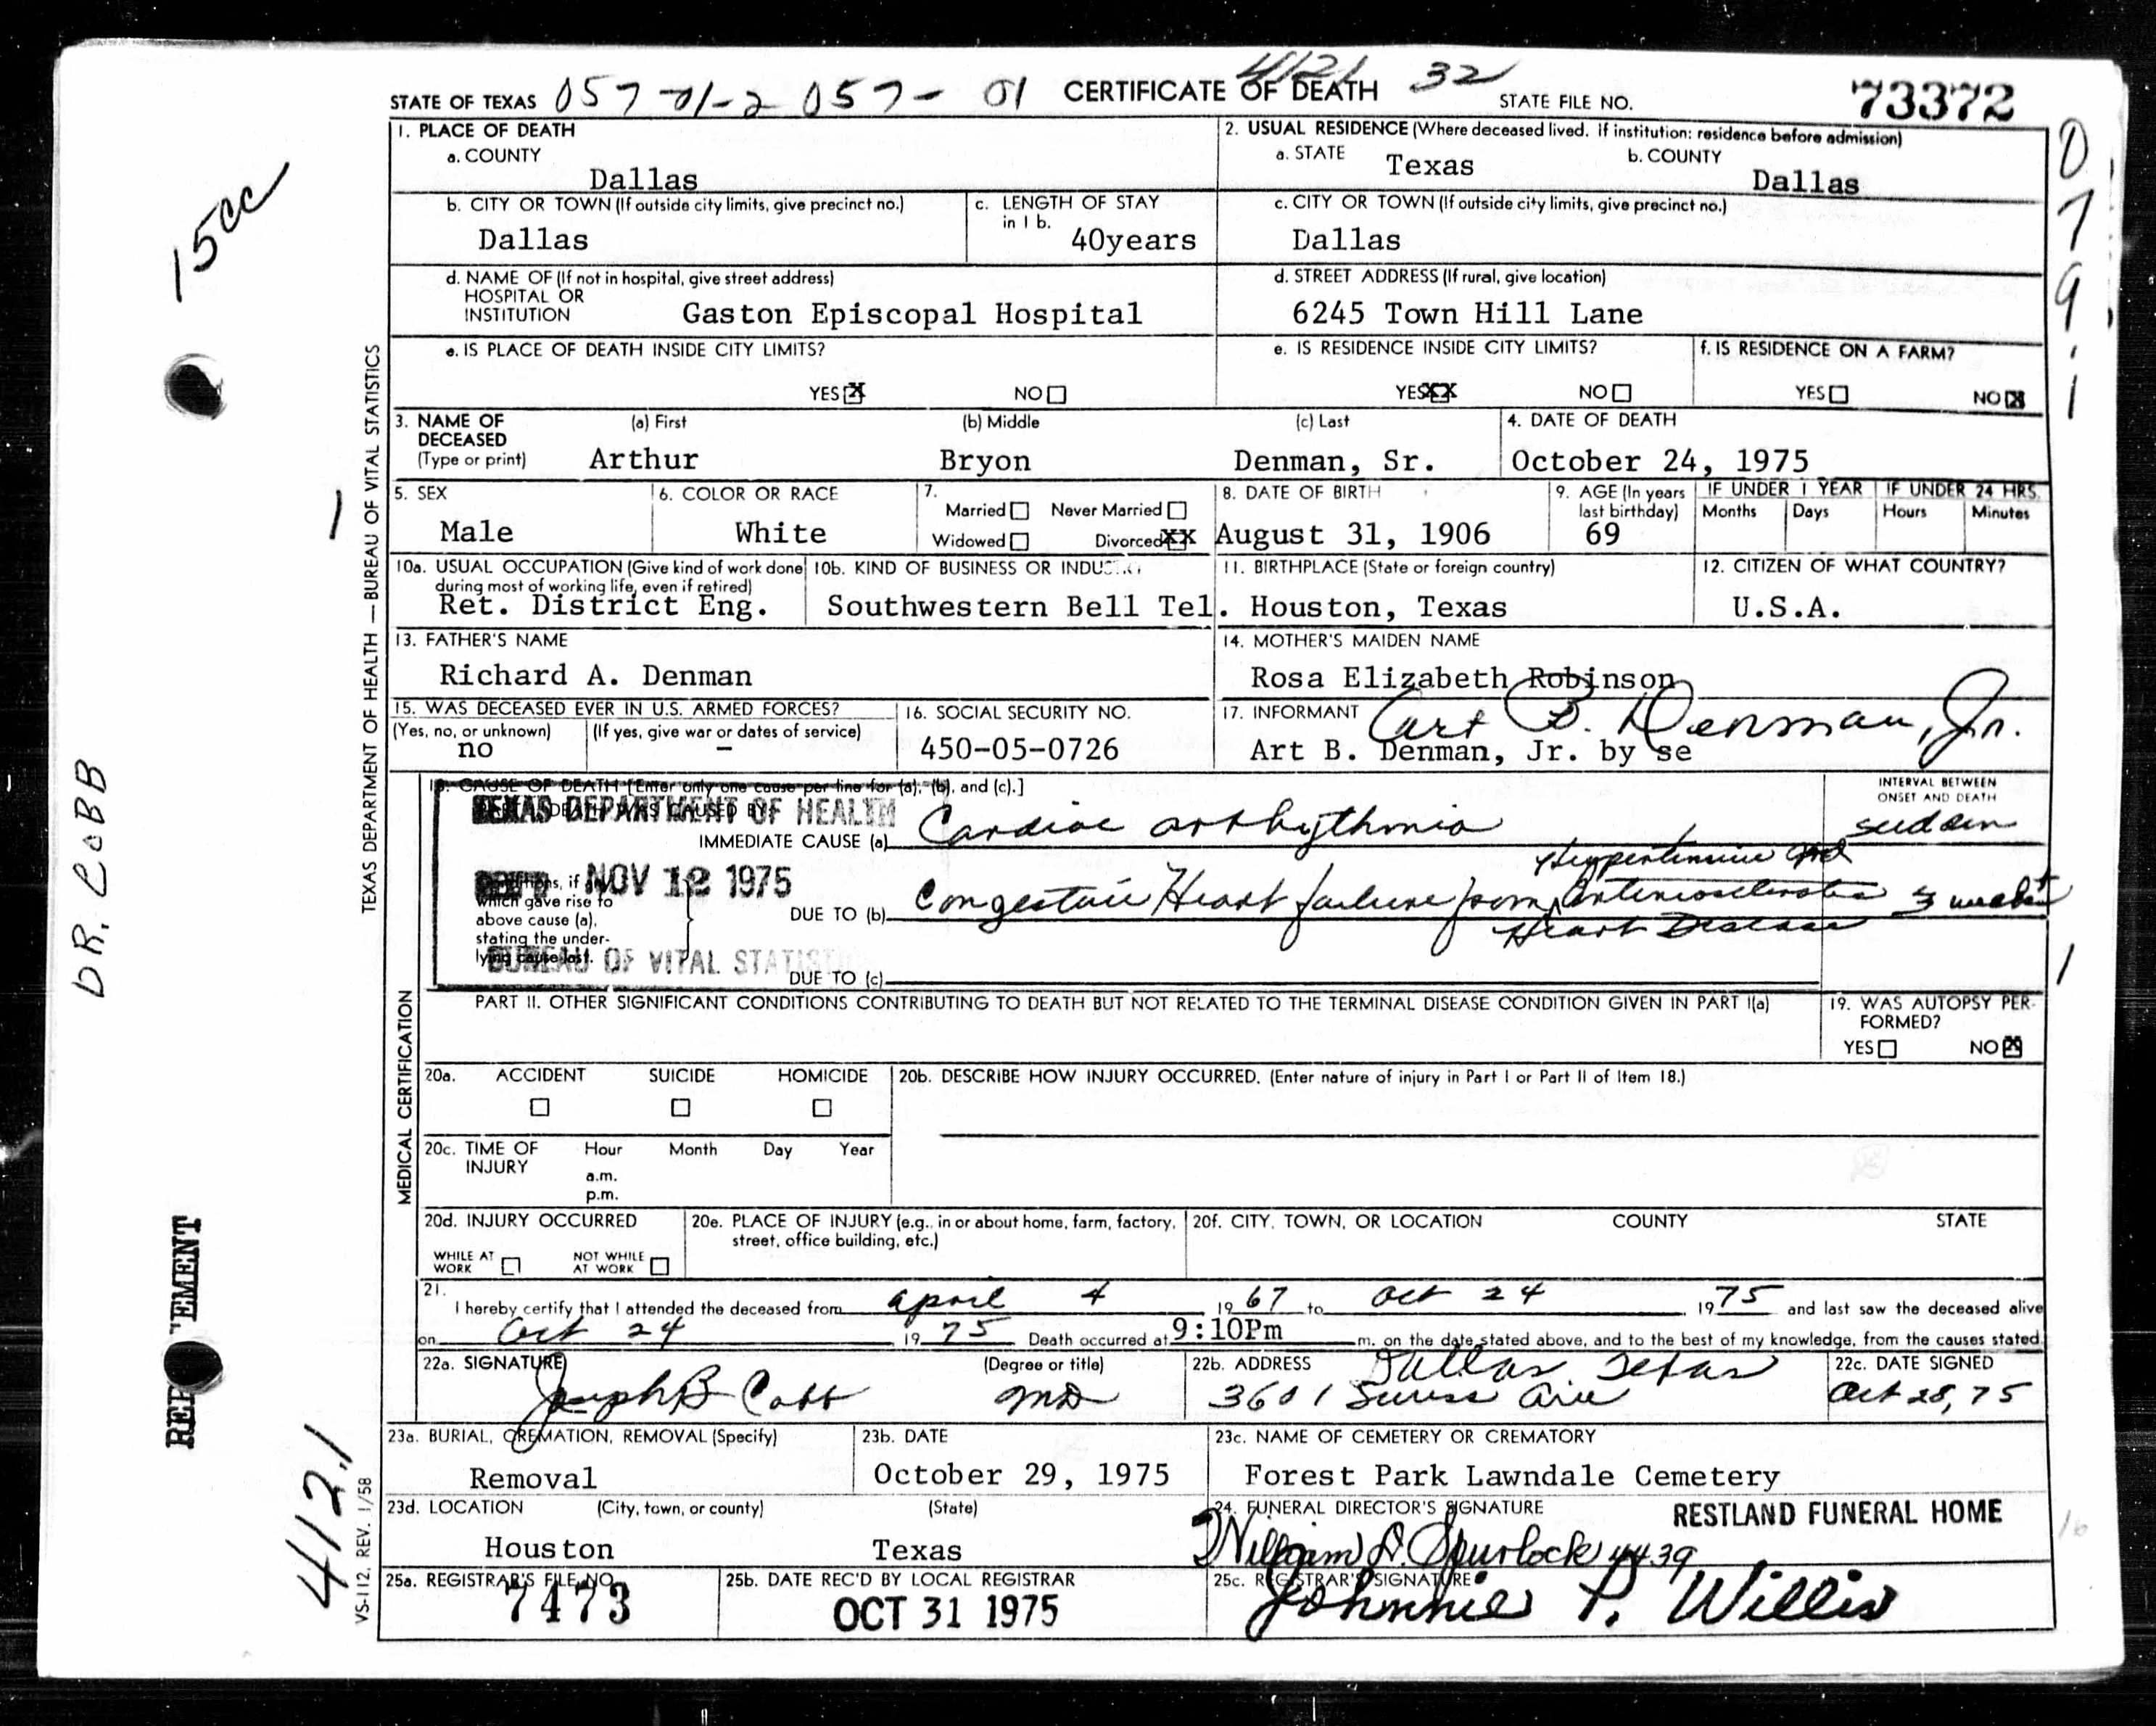 STATE OF TEXAS 057-01-2 057-01 CERTIFICATE OF DEATH 4121 32 STATE FILE NO. 73372
1. PLACE OF DEATH
a. COUNTY
Dallas
2. USUAL RESIDENCE (Where deceased lived. If institution: residence before admission)
a. STATE Texas b. COUNTY Dallas
b. CITY OR TOWN (If outside city limits, give precinct no.)
Dallas
c. LENGTH OF STAY in 1 b.
40years
c. CITY OR TOWN (If outside city limits, give precinct no.)
Dallas
d. NAME OF (If not in hospital, give street address)
HOSPITAL OR
INSTITUTION Gaston Episcopal Hospital
d. STREET ADDRESS (If rural, give location)
6245 Town Hill Lane
e. IS PLACE OF DEATH INSIDE CITY LIMITS?
YES X NO
e. IS RESIDENCE INSIDE CITY LIMITS?
YES XX NO
f. IS RESIDENCE ON A FARM?
YES NO X
3. NAME OF DECEASED (Type or print)
(a) First (b) Middle (c) Last
Arthur Bryon Denman, Sr.
4. DATE OF DEATH
October 24, 1975
5. SEX
Male
6. COLOR OR RACE
White
7. Married Never Married
Widowed Divorced XX
8. DATE OF BIRTH
August 31, 1906
9. AGE (In years last birthday)
69
IF UNDER 1 YEAR
Months Days
IF UNDER 24 HRS.
Hours Minutes
10a. USUAL OCCUPATION (Give kind of work done during most of working life, even if retired)
Ret. District Eng.
10b. KIND OF BUSINESS OR INDUSTRY
Southwestern Bell Tel.
11. BIRTHPLACE (State or foreign country)
Houston, Texas
12. CITIZEN OF WHAT COUNTRY?
U.S.A.
13. FATHER'S NAME
Richard A. Denman
14. MOTHER'S MAIDEN NAME
Rosa Elizabeth Robinson
15. WAS DECEASED EVER IN U.S. ARMED FORCES?
(Yes, no, or unknown) (If yes, give war or dates of service)
no –
16. SOCIAL SECURITY NO.
450-05-0726
17. INFORMANT Art B. Denman, Jr.
Art B. Denman, Jr. by se
18. CAUSE OF DEATH [Enter only one cause per line for (a), (b), and (c).]
TEXAS DEPARTMENT OF HEALTH
IMMEDIATE CAUSE (a) Cardiac arrhythmia
INTERVAL BETWEEN
ONSET AND DEATH
sudden
NOV 12 1975
Conditions, if any
which gave rise to
above cause (a),
stating the under-
lying cause last.
Hypertensive and
DUE TO (b) Congestive Heart failure from Arteriosclerotic 3 weeks
Heart Disease
BUREAU OF VITAL STATISTICS
DUE TO (c)
PART II. OTHER SIGNIFICANT CONDITIONS CONTRIBUTING TO DEATH BUT NOT RELATED TO THE TERMINAL DISEASE CONDITION GIVEN IN PART I(a)
19. WAS AUTOPSY PER-
FORMED?
YES NO X
20a. ACCIDENT SUICIDE HOMICIDE
20b. DESCRIBE HOW INJURY OCCURRED. (Enter nature of injury in Part I or Part II of Item 18.)
20c. TIME OF INJURY Hour Month Day Year
a.m.
p.m.
20d. INJURY OCCURRED
WHILE AT WORK NOT WHILE AT WORK
20e. PLACE OF INJURY (e.g., in or about home, farm, factory,
street, office building, etc.)
20f. CITY, TOWN, OR LOCATION COUNTY STATE
21.
I hereby certify that I attended the deceased from April 4 1967 to Oct 24 1975 and last saw the deceased alive
on Oct 24 1975 Death occurred at 9:10Pm m. on the date stated above, and to the best of my knowledge, from the causes stated.
22a. SIGNATURE (Degree or title)
Joseph B Cobb MD
22b. ADDRESS Dallas Texas
3601 Swiss Ave
22c. DATE SIGNED
Oct 28, 75
23a. BURIAL, CREMATION, REMOVAL (Specify)
Removal
23b. DATE
October 29, 1975
23c. NAME OF CEMETERY OR CREMATORY
Forest Park Lawndale Cemetery
23d. LOCATION (City, town, or county) (State)
Houston Texas
24. FUNERAL DIRECTOR'S SIGNATURE RESTLAND FUNERAL HOME
William D. Spurlock 4439
25a. REGISTRAR'S FILE NO.
7473
25b. DATE REC'D BY LOCAL REGISTRAR
OCT 31 1975
25c. REGISTRAR'S SIGNATURE
Johnnie P. Willis
TEXAS DEPARTMENT OF HEALTH — BUREAU OF VITAL STATISTICS
MEDICAL CERTIFICATION
VS-112, REV. 1/58
15cc
1
DR. COBB
412.1
079.1
1
1